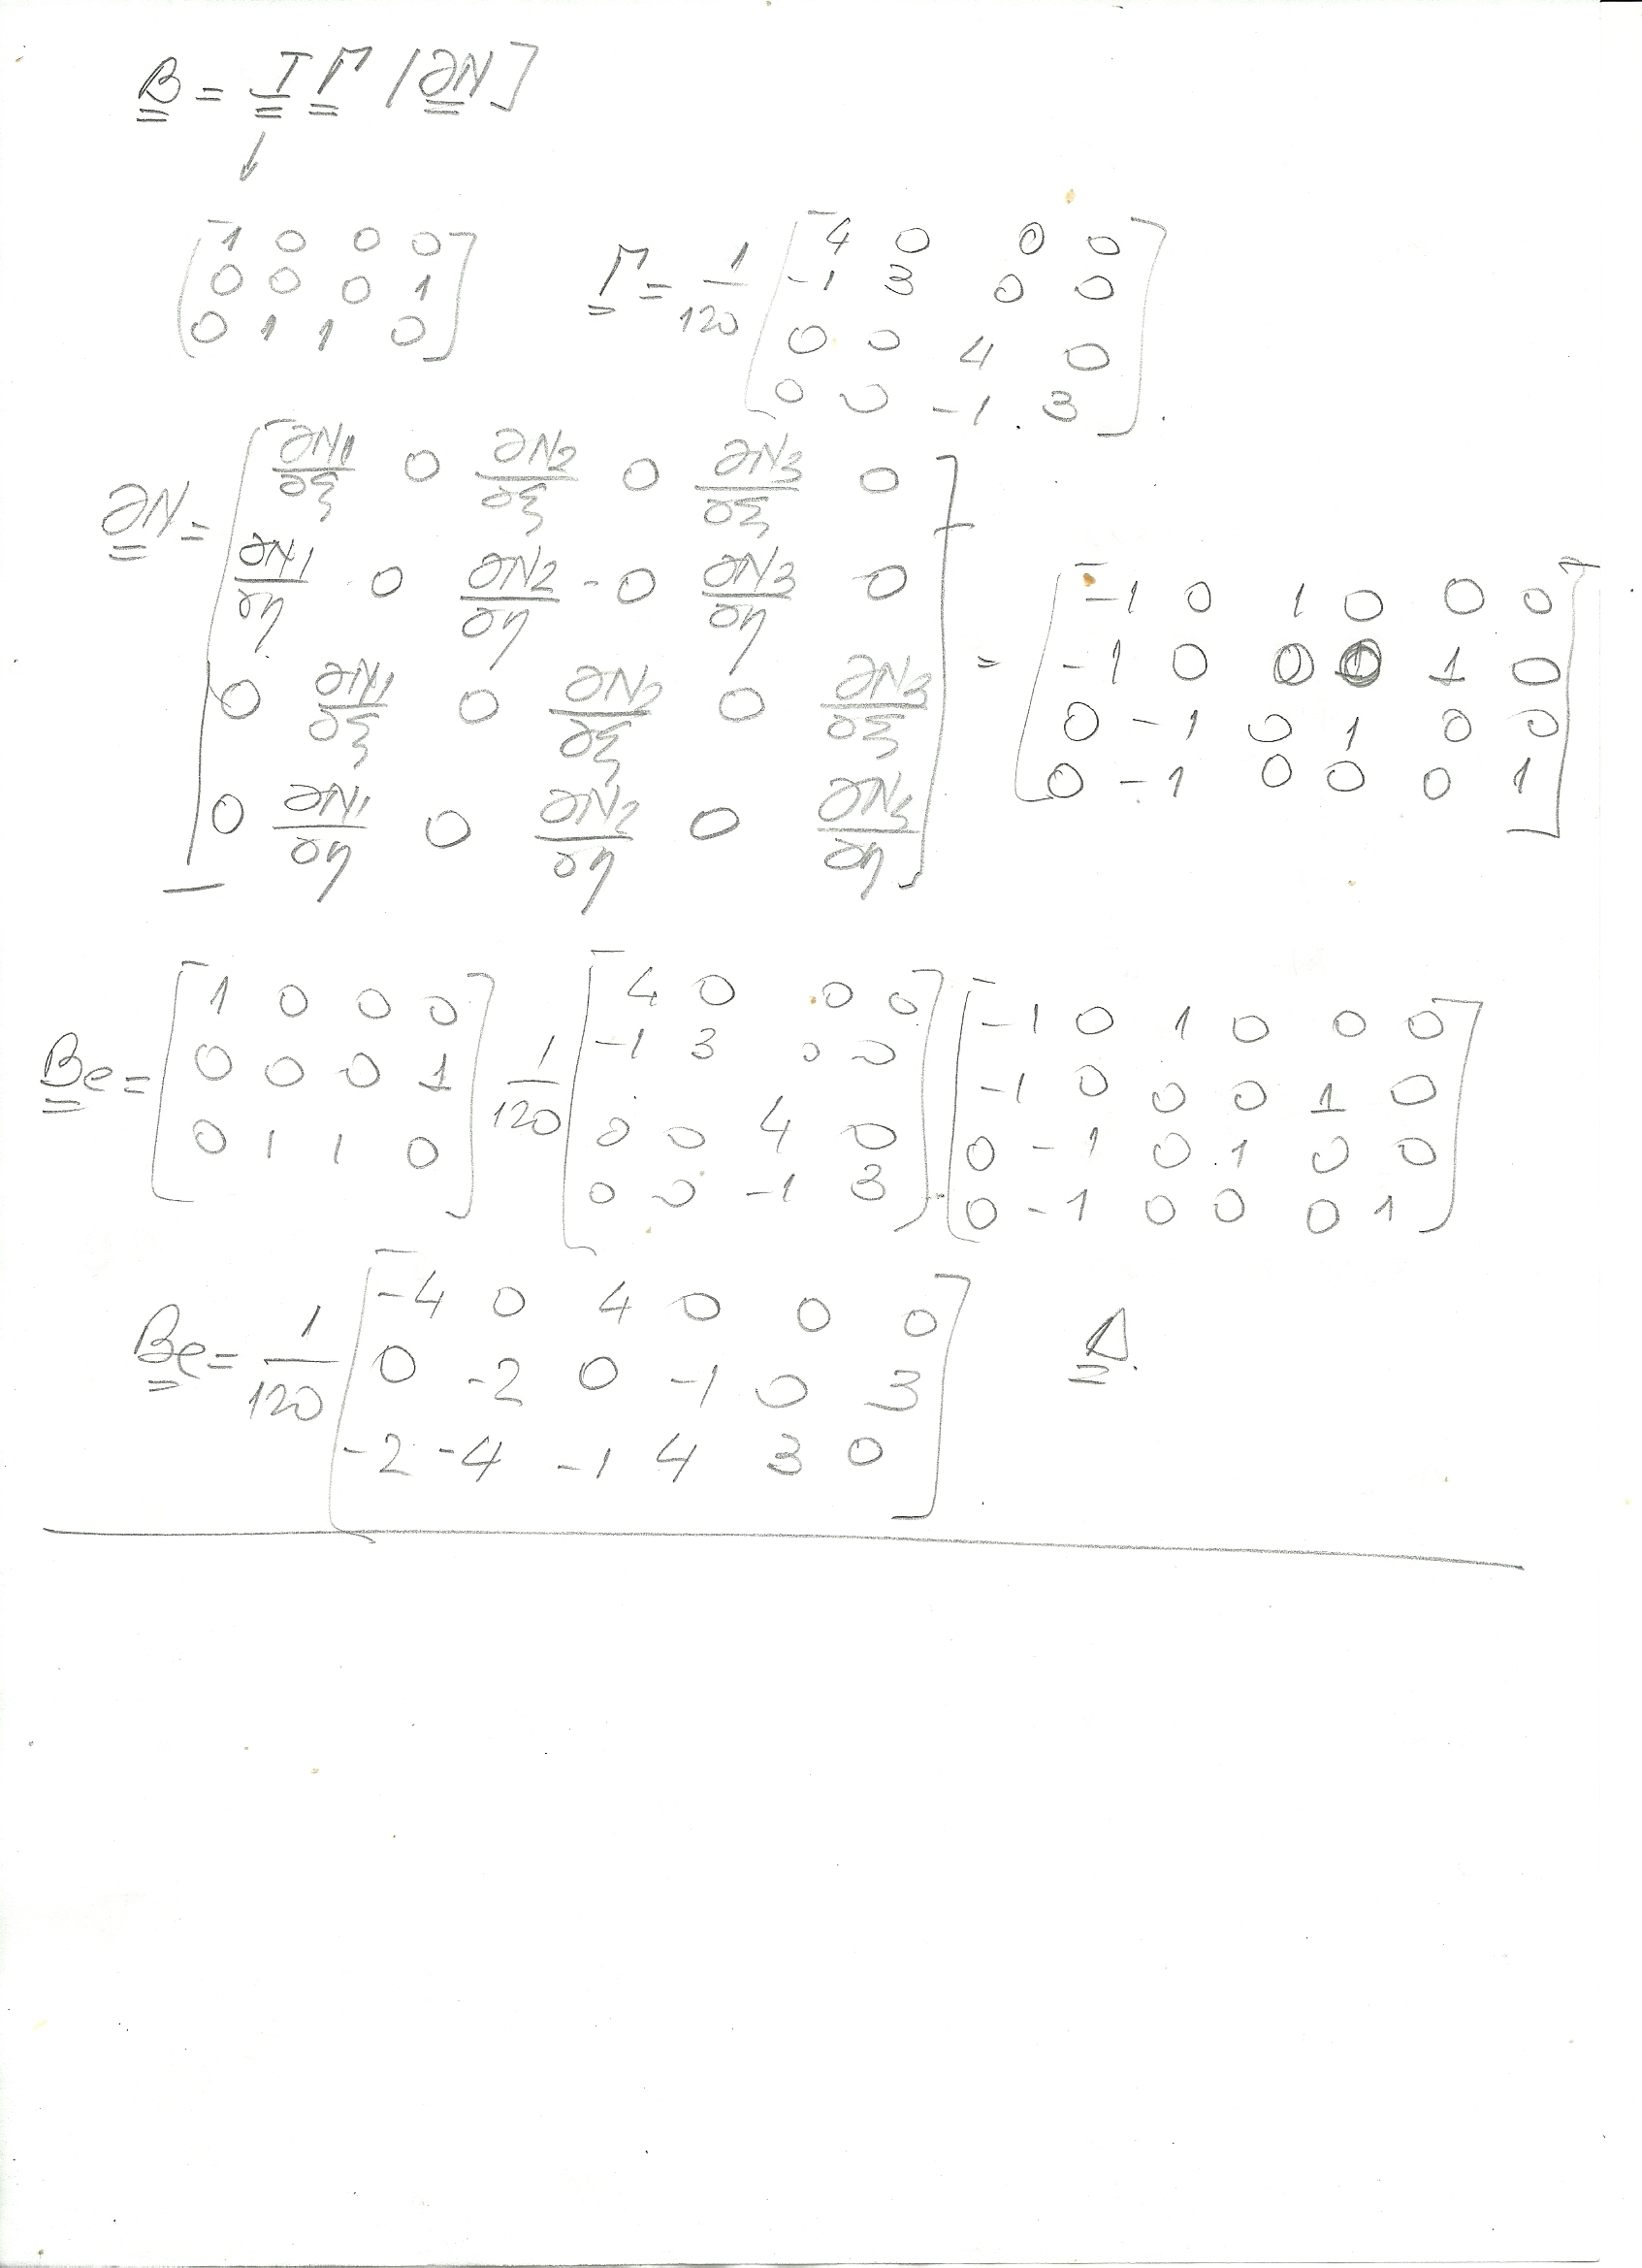 B = I Γ [∂N]
↓
[1 0 0 0
0 0 0 1
0 1 1 0]
Γ = 1/120 [4 0 0 0
-1 3 0 0
0 0 4 0
0 0 -1 3].
∂N = [∂N1/∂ξ 0 ∂N2/∂ξ 0 ∂N3/∂ξ 0
∂N1/∂η 0 ∂N2/∂η 0 ∂N3/∂η 0
0 ∂N1/∂ξ 0 ∂N2/∂ξ 0 ∂N3/∂ξ
0 ∂N1/∂η 0 ∂N2/∂η 0 ∂N3/∂η]
= [-1 0 1 0 0 0
-1 0 0 0 1 0
0 -1 0 1 0 0
0 -1 0 0 0 1]
Be = [1 0 0 0
0 0 0 1
0 1 1 0]
1/120 [4 0 0 0
-1 3 0 0
0 0 4 0
0 0 -1 3]
[-1 0 1 0 0 0
-1 0 0 0 1 0
0 -1 0 1 0 0
0 -1 0 0 0 1]
Be = 1/120 [-4 0 4 0 0 0
0 -2 0 -1 0 3
-2 -4 -1 4 3 0]